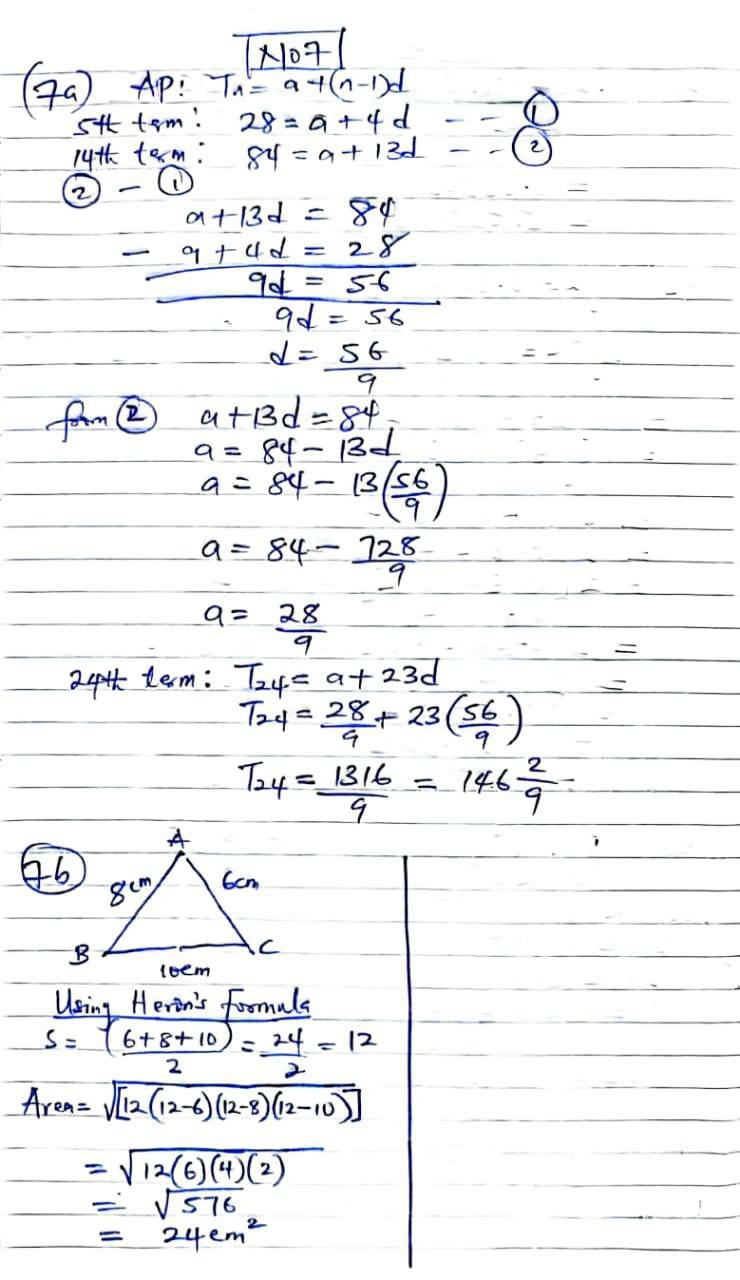 No7
(7a) AP: Tn = a+(n-1)d
5th term: 28 = a + 4d - - ①
14th term: 84 = a + 13d - - ②
② - ①
a+13d = 84
- a + 4d = 28
9d = 56
9d = 56
d = 56/9
from ② a+13d = 84
a = 84 - 13d
a = 84 - 13(56/9)
a = 84 - 728/9
a = 28/9
24th term: T24 = a + 23d
T24 = 28/9 + 23(56/9)
T24 = 1316/9 = 146 2/9
A
7b
8cm 6cm
B C
10cm
Using Heron's formula
S = (6+8+10)/2 = 24/2 = 12
Area = √[12(12-6)(12-8)(12-10)]
= √12(6)(4)(2)
= √576
= 24cm²